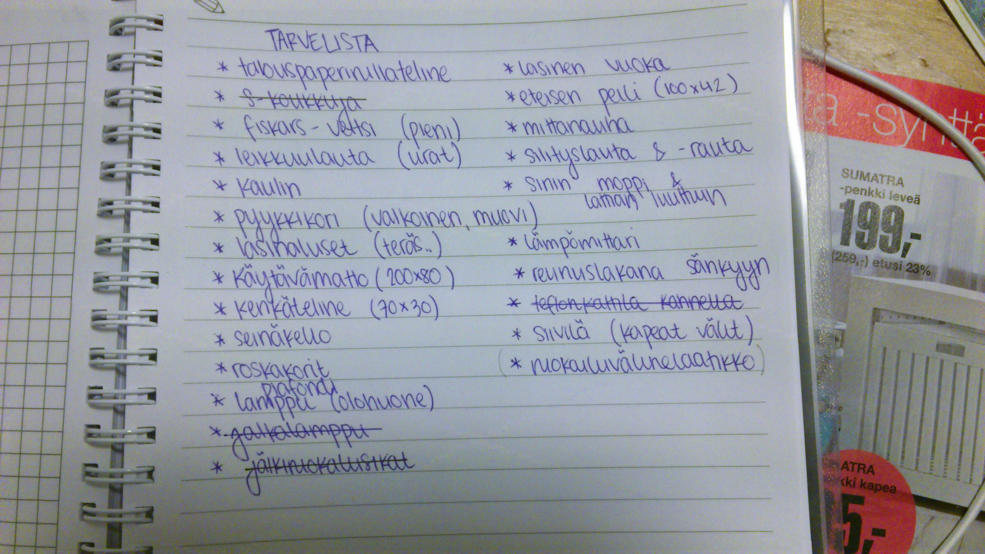 TARVELISTA
* talouspaperirullateline
* S-koukkuja
* fiskars-veitsi (pieni)
* leikkuulauta (urat)
* kaulin
* pyykkikori (valkoinen, muovi)
* lasinaluset (teräs..)
* käytävämatto (200x80)
* kenkäteline (70x30)
* seinäkello
* roskakorit
plafondi
* lamppu (olohuone)
* jalkalamppu
* jälkiruokalusikat
* lasinen vuoka
* eteisen peili (100x42)
* mittanauha
* silityslauta & -rauta
* sinin moppi &
lattian luuttuin
* lämpömittari
* reunuslakana sänkyyn
* teflonkattila kannella
* siivilä (kapeat välit)
(* ruokailuvälinelaatikko)
-syn
SUMATRA
-penkki leveä
199,-
(259,-) etusi 23%
ATRA
kki kapea
5,-